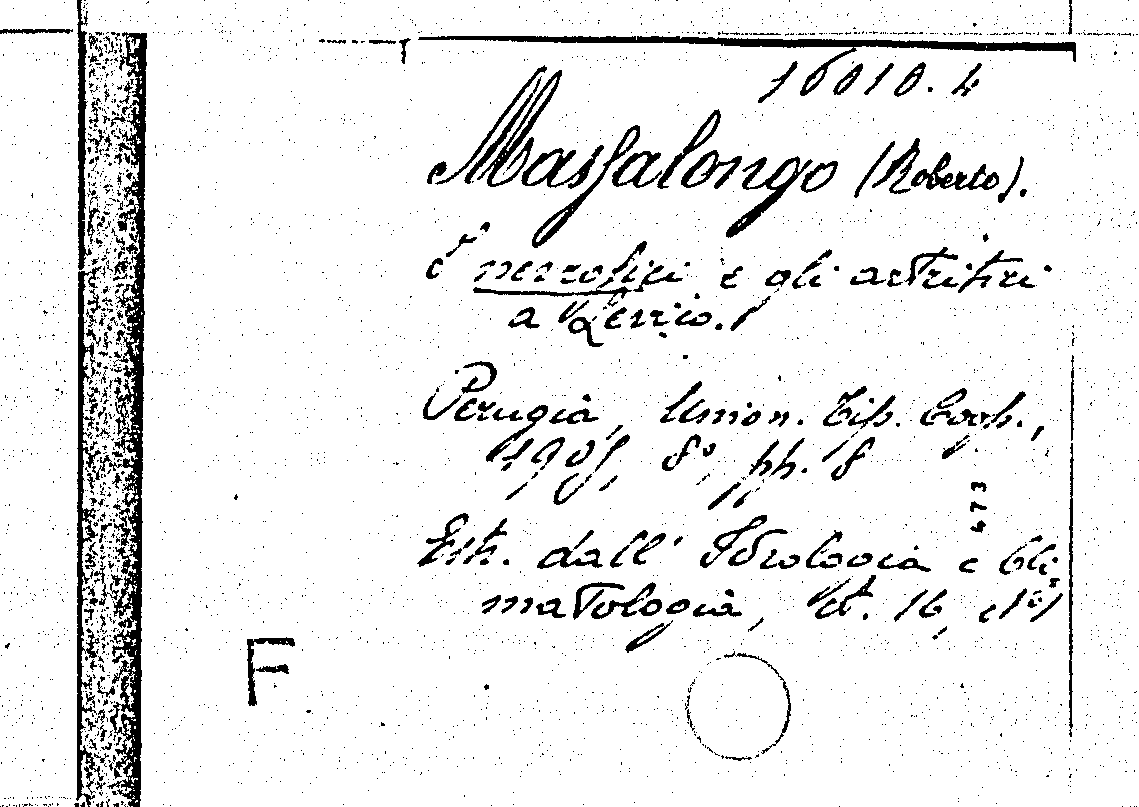 16010.4
Massalongo (Roberto).
I nevrosici e gli artritici
a Levico.
Perugia, Union. Tip. Coop.,
1905, 8°, pp. 8
473
Estr. dall' Idrologia e Cli=
matologia, A. 16, N°1
F